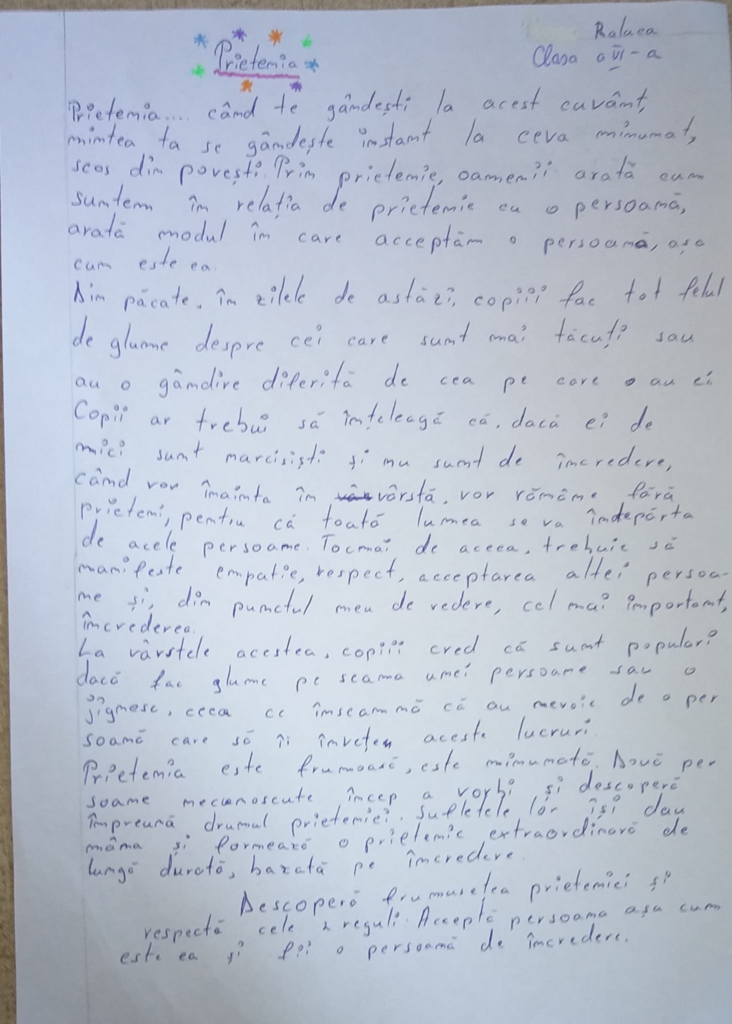 Raluca
Clasa a VI-a
Prietenia
Prietenia.... când te gândești la acest cuvânt,
mintea ta se gândește instant la ceva minunat,
scos din povești. Prin prietenie, oamenii arată cum
suntem în relația de prietenie cu o persoană,
arată modul în care acceptăm o persoană, așa
cum este ea.
Din păcate, în zilele de astăzi, copiii fac tot felul
de glume despre cei care sunt mai tăcuți sau
au o gândire diferită de cea pe care o au ei
Copii ar trebui să înțeleagă că, dacă ei de
mici sunt narcisiști și nu sunt de încredere,
când vor înainta în vârstă, vor rămâne fără
prieteni, pentru că toată lumea se va îndepărta
de acele persoane. Tocmai de aceea, trebuie să
manifeste empatie, respect, acceptarea altei persoa-
ne și, din punctul meu de vedere, cel mai important,
încrederea.
La vârstele acestea, copiii cred că sunt populari
dacă fac glume pe seama unei persoane sau o
jignesc, ceea ce înseamnă că au nevoie de o per
soană care să îi învețe aceste lucruri.
Prietenia este frumoasă, este minunată. Două per
soane necunoscute încep a vorbi și descoperă
împreună drumul prieteniei. Sufletele lor își dau
mâna și formează o prietenie extraordinară de
lungă durată, bazată pe încredere.
Descoperă frumusețea prieteniei și
respectă cele 2 reguli. Acceptă persoana așa cum
este ea și fii o persoană de încredere.